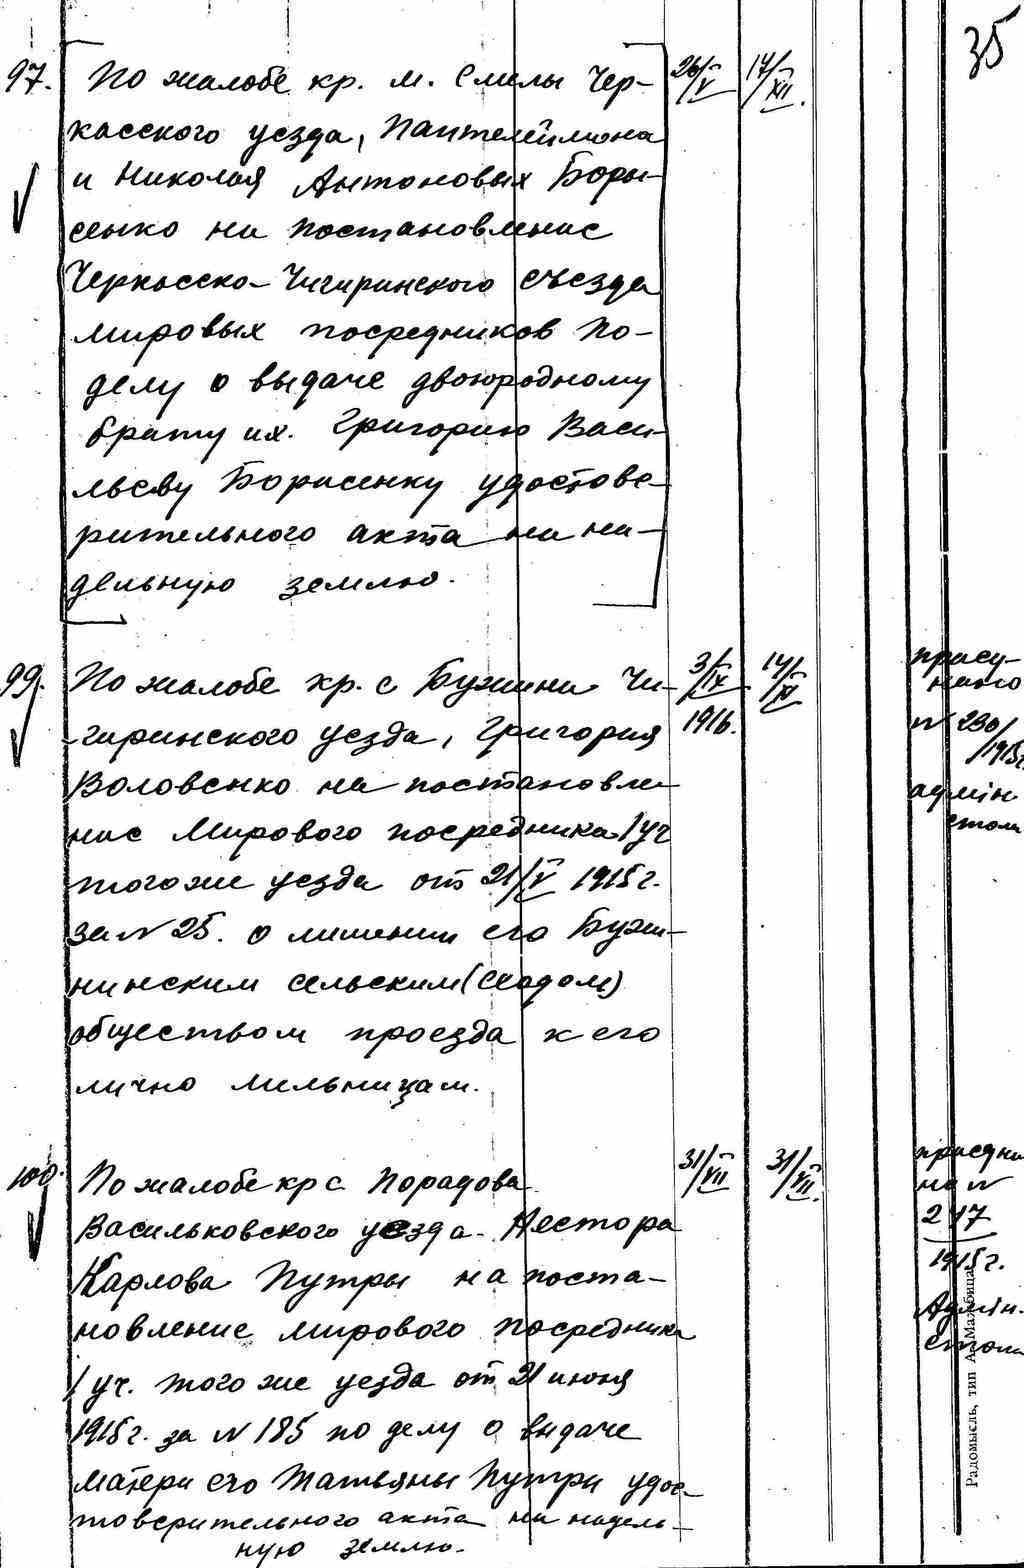 35
97. По жалобе кр. м. Смилы Чер-
касского уезда, Пантелеймона
и Николая Антоновых Боры-
сенко на постановление
Черкасско-Чигиринского съезда
мировых посредников по-
делу о выдаче двоюродному
брату их. Григорию Васи-
льеву Борисенку удостове-
рительного акта на на-
дельную землю.
26/V
14/XII.
99. По жалобе кр. с Бужина Чи-
гиринского уезда, Григория
Воловенко на постановле-
ние Мирового посредника 1 уч
того же уезда от 21/V 1915 г.
за N 25. о лишении его Бужи-
нинским сельским (сходом)
обществом проезда к его
лично мельницам.
3/IX
1916.
14/XI
N 230/
1915г
адмін.
стола
100. По жалобе кр с Порадова
Васильковского уезда. Нестора
Карлова Путры на поста-
новление мирового посредника
1 уч. того же уезда от 21 июня
1915 г. за N 185 по делу о выдаче
матери его Татьяны Путри удос-
товерительного акта на надель-
ную землю.
31/VII
31/VII.
на N
247
1915 г.
Адмін.
стола
Радомысль, тип А. Мажбица